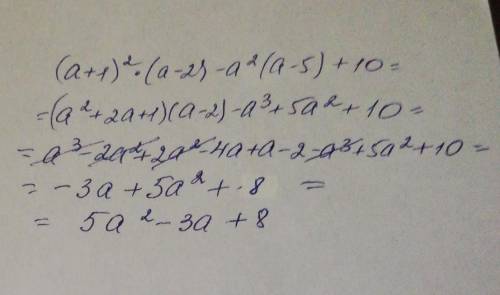 (a+1)²·(a-2)-a²(a-5)+10=
=(a²+2a+1)(a-2)-a³+5a²+10=
=a³-2a²+2a²-4a+a-2-a³+5a²+10=
=-3a+5a²+·8 =
= 5a²-3a+8